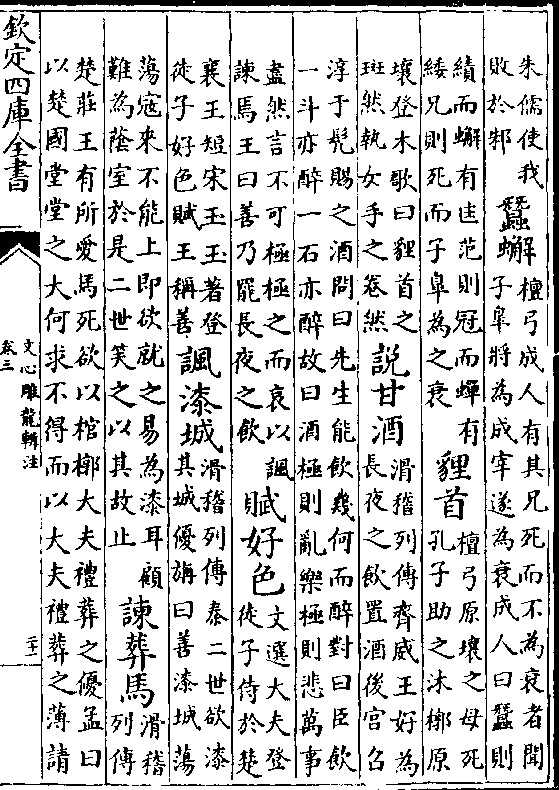 朱儒使我
敗於邾
蠶蠏
檀弓成人有其兄死而不為衰者聞
子臯將為成宰遂為衰成人曰蠶則
績而蠏有匡范則冠而蟬有
緌兄則死而子臯為之衰
貍首
檀弓原壤之母死
孔子助之沐槨原
壤登木歌曰貍首之
斑然執女手之卷然
説甘酒
滑稽列傳齊威王好為
長夜之飲置酒後宫召
淳于髠賜之酒問曰先生能飲幾何而醉對曰臣飲
一斗亦醉一石亦醉故曰酒極則亂樂極則悲萬事
盡然言不可極極之而哀以諷
諫馬王曰善乃罷長夜之飲
賦好色
文選大夫登
徒子侍於楚
襄王短宋玉玉著登
徒子好色賦王稱善
諷漆城
滑稽列傳秦二世欲漆
其城優旃曰善漆城蕩
蕩寇來不能上即欲就之易為漆耳顧
難為蔭室於是二世笑之以其故止
諫葬馬
滑稽
列傳
楚莊王有所愛馬死欲以棺槨大夫禮葬之優孟曰
以楚國堂堂之大何求不得而以大夫禮葬之薄請
欽定四庫全書
文心雕龍輯注
卷三
二十一